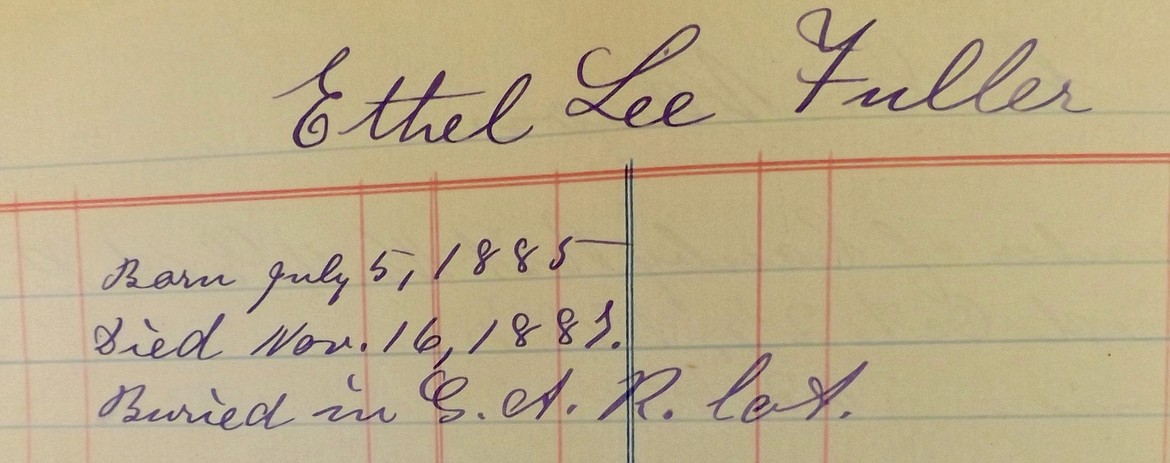 Ethel Lee Fuller
Born July 5, 1885
Died Nov. 16,
Buried in G. A. R. lot.